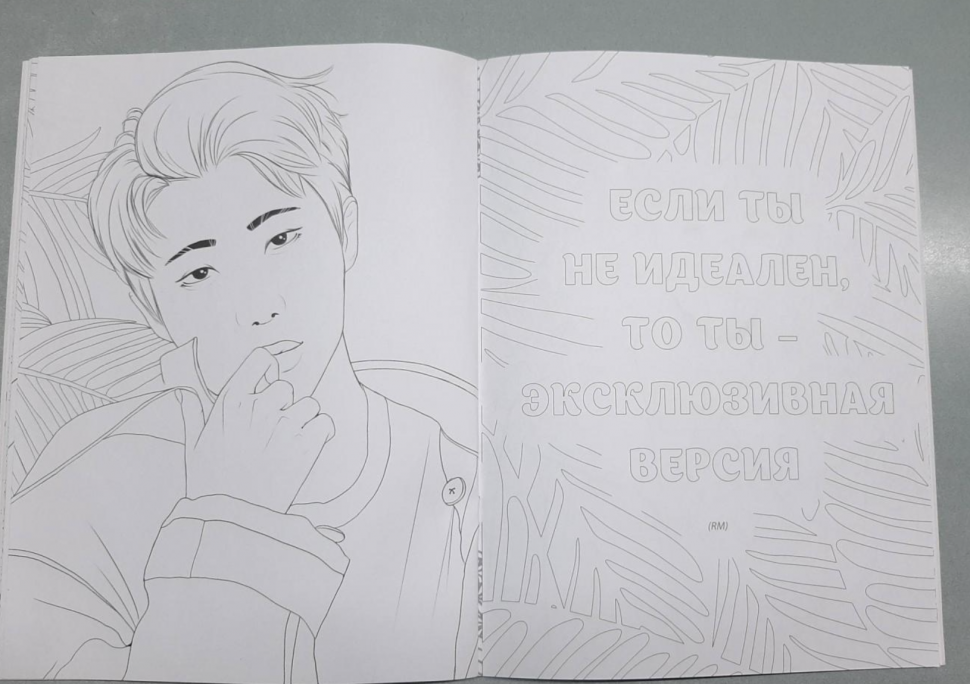 ЕСЛИ ТЫ
НЕ ИДЕАЛЕН,
ТО ТЫ –
ЭКСКЛЮЗИВНАЯ
ВЕРСИЯ
(RM)